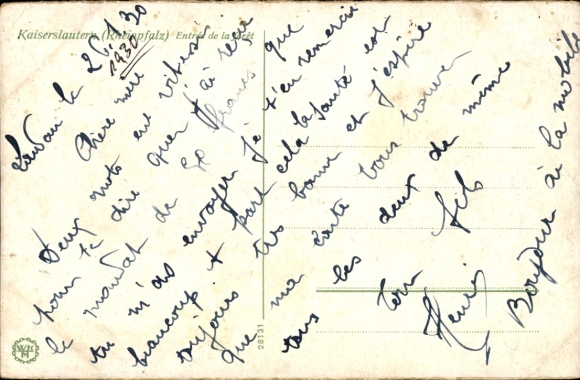 Kaiserslautern (Rheinpfalz) Entrée de la forêt
le 26.1.30
1930
Chère mère
Deux mots en vitesse
pour te dire que j'ai reçu
le mandat de 50 francs que
tu m'as envoyer je t'en remercie
beaucoup + part cela la santé est
toujours très bonne et j'espère
que ma carte vous trouver
tous les deux de même
Ton fils
Henri
Bonjour à la mobile
28131